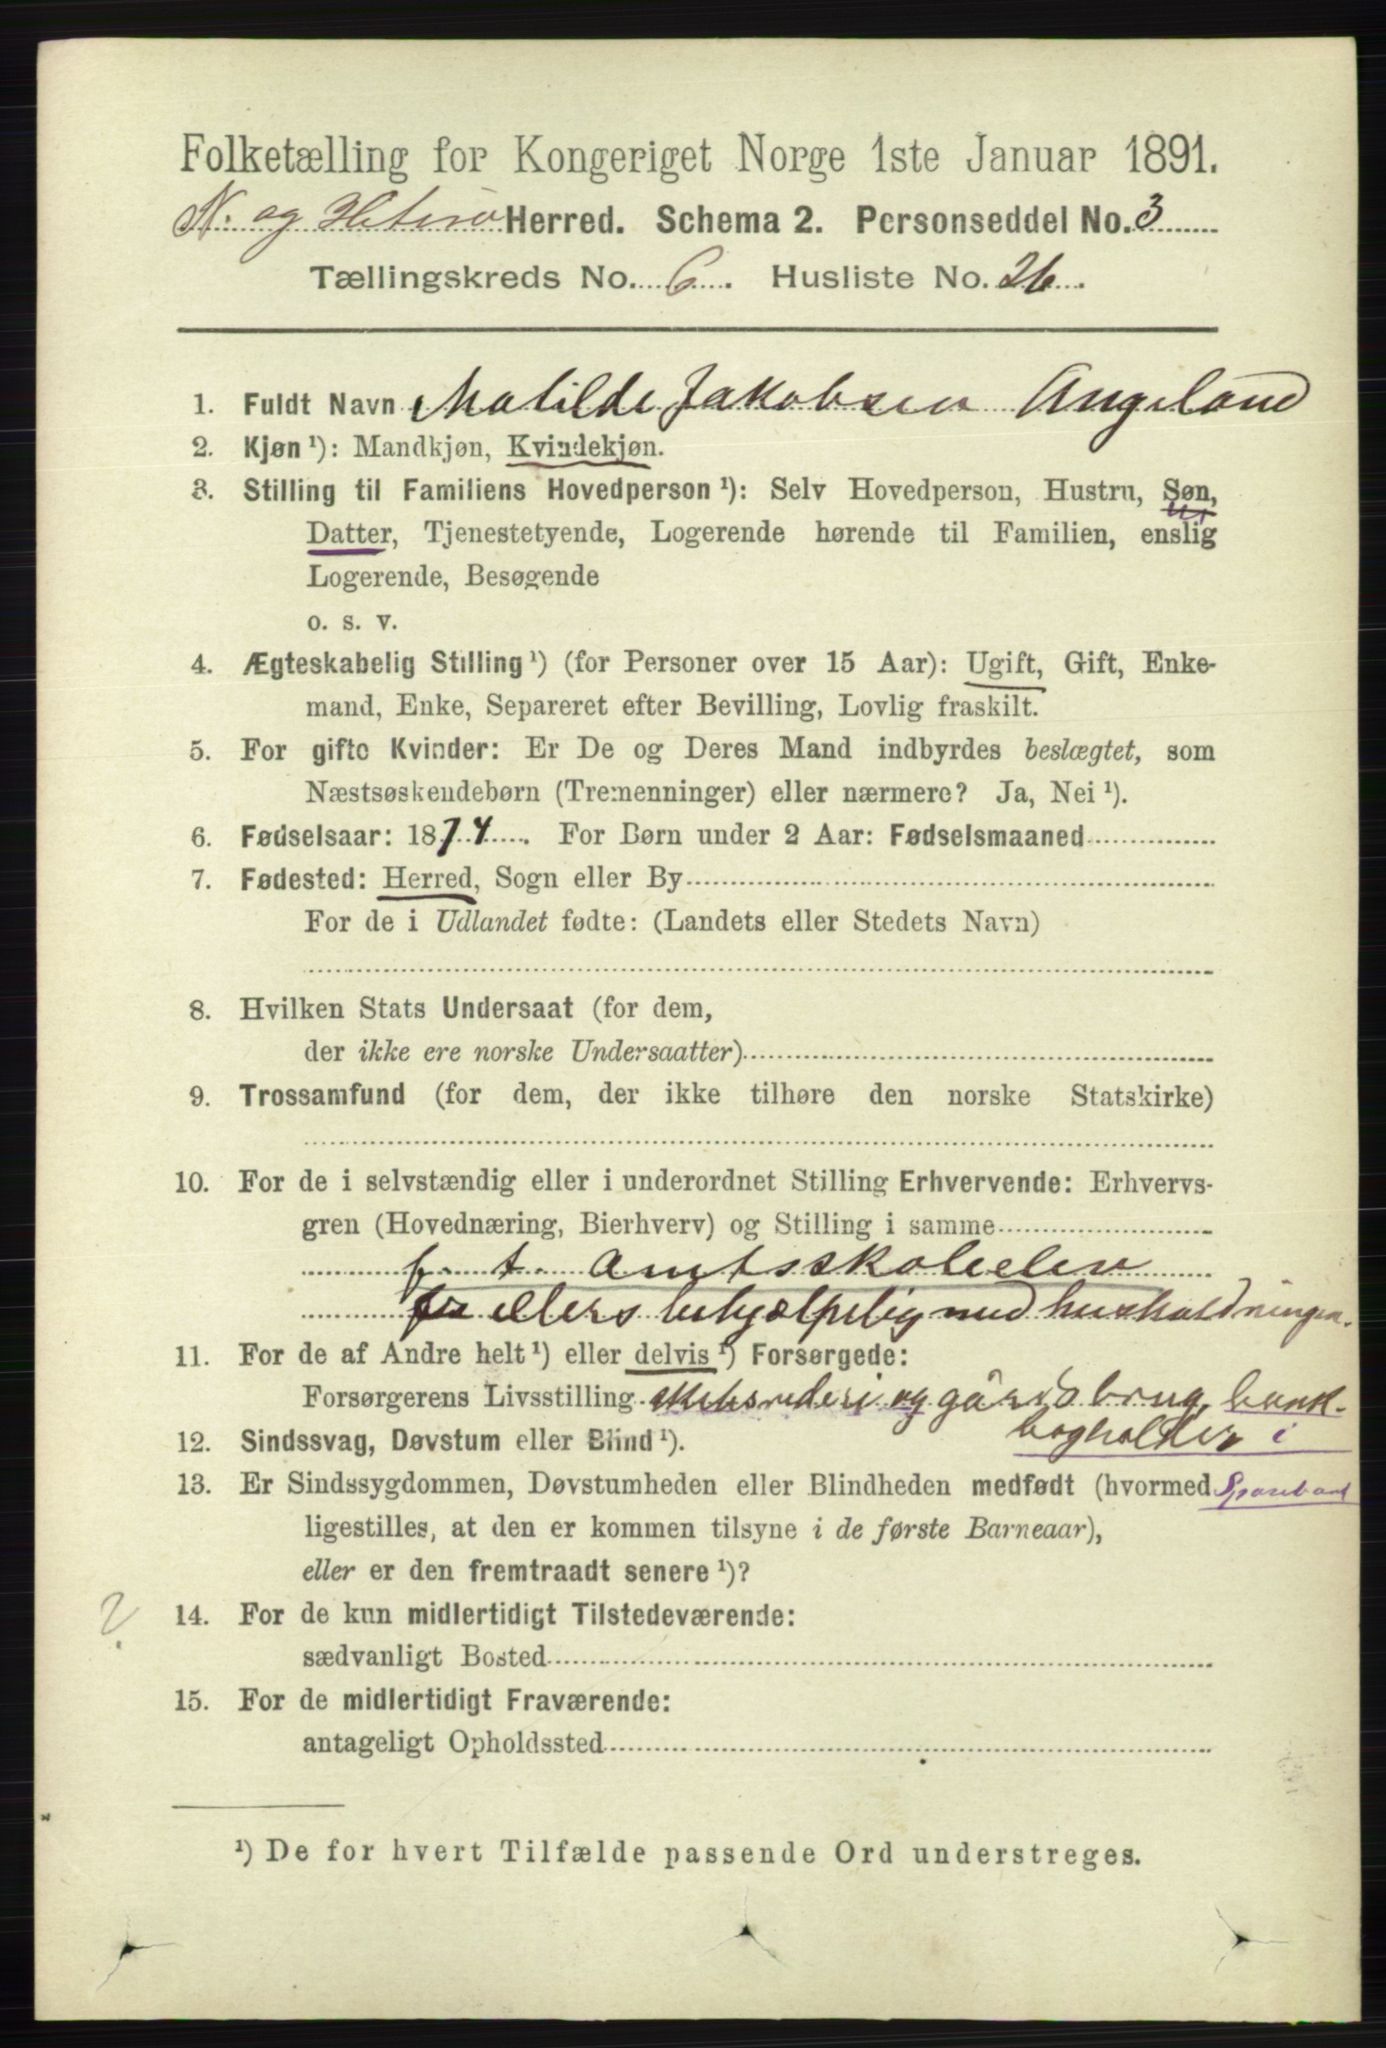 Folketælling for Kongeriget Norge 1ste Januar 1891.
N. og Hiterø Herred. Schema 2. Personseddel No. 3
Tællingskreds No. 6. Husliste No. 26.
1. Fuldt Navn Matilde Jakobsen Angeland
2. Kjøn ¹): Mandkjøn, Kvindekjøn.
3. Stilling til Familiens Hovedperson ¹): Selv Hovedperson, Hustru, Søn,
Datter, Tjenestetyende, Logerende hørende til Familien, enslig
Logerende, Besøgende
o. s. v.
4. Ægteskabelig Stilling ¹) (for Personer over 15 Aar): Ugift, Gift, Enke-
mand, Enke, Separeret efter Bevilling, Lovlig fraskilt.
5. For gifte Kvinder: Er De og Deres Mand indbyrdes beslægtet, som
Næstsøskendebørn (Tremenninger) eller nærmere? Ja, Nei ¹).
6. Fødselsaar: 1874. For Børn under 2 Aar: Fødselsmaaned
7. Fødested: Herred, Sogn eller By
For de i Udlandet fødte: (Landets eller Stedets Navn)
8. Hvilken Stats Undersaat (for dem,
der ikke ere norske Undersaatter)
9. Trossamfund (for dem, der ikke tilhøre den norske Statskirke)
10. For de i selvstændig eller i underordnet Stilling Erhvervende: Erhvervs-
gren (Hovednæring, Bierhverv) og Stilling i samme
f. t. Amtsskoleelev
ellers behjælpelig med husholdningen.
11. For de af Andre helt ¹) eller delvis ¹) Forsørgede:
Forsørgerens Livsstilling skibsrederi og gårdsbrug, bank-
bogholder i
12. Sindssvag, Døvstum eller Blind ¹).
13. Er Sindssygdommen, Døvstumheden eller Blindheden medfødt (hvormed Sparebank
ligestilles, at den er kommen tilsyne i de første Barneaar),
eller er den fremtraadt senere ¹)?
?
14. For de kun midlertidigt Tilstedeværende:
sædvanligt Bosted
15. For de midlertidigt Fraværende:
antageligt Opholdssted
¹) De for hvert Tilfælde passende Ord understreges.